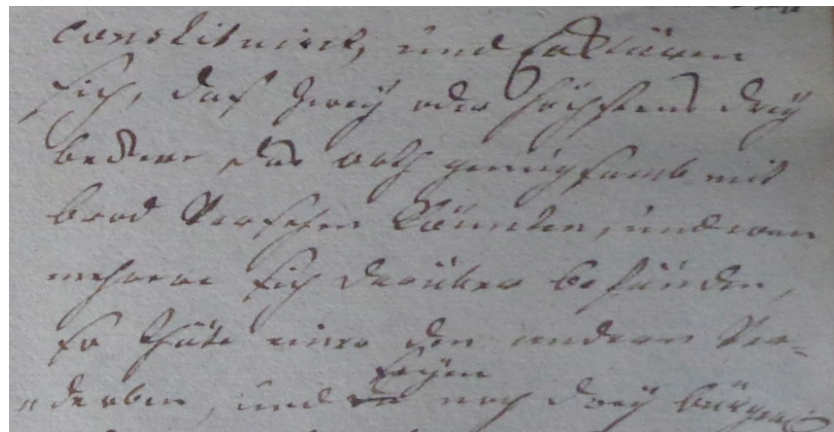 constituirt, und Erklären
sich, daß zweÿ oder höchstens dreÿ
beckere das orth genugsamb mit
brod Versehen könnten, und wan
mehrere sich darüber befünden,
so thäte einer den anderen Ver=
derben, und seÿen noch dreÿ bürger